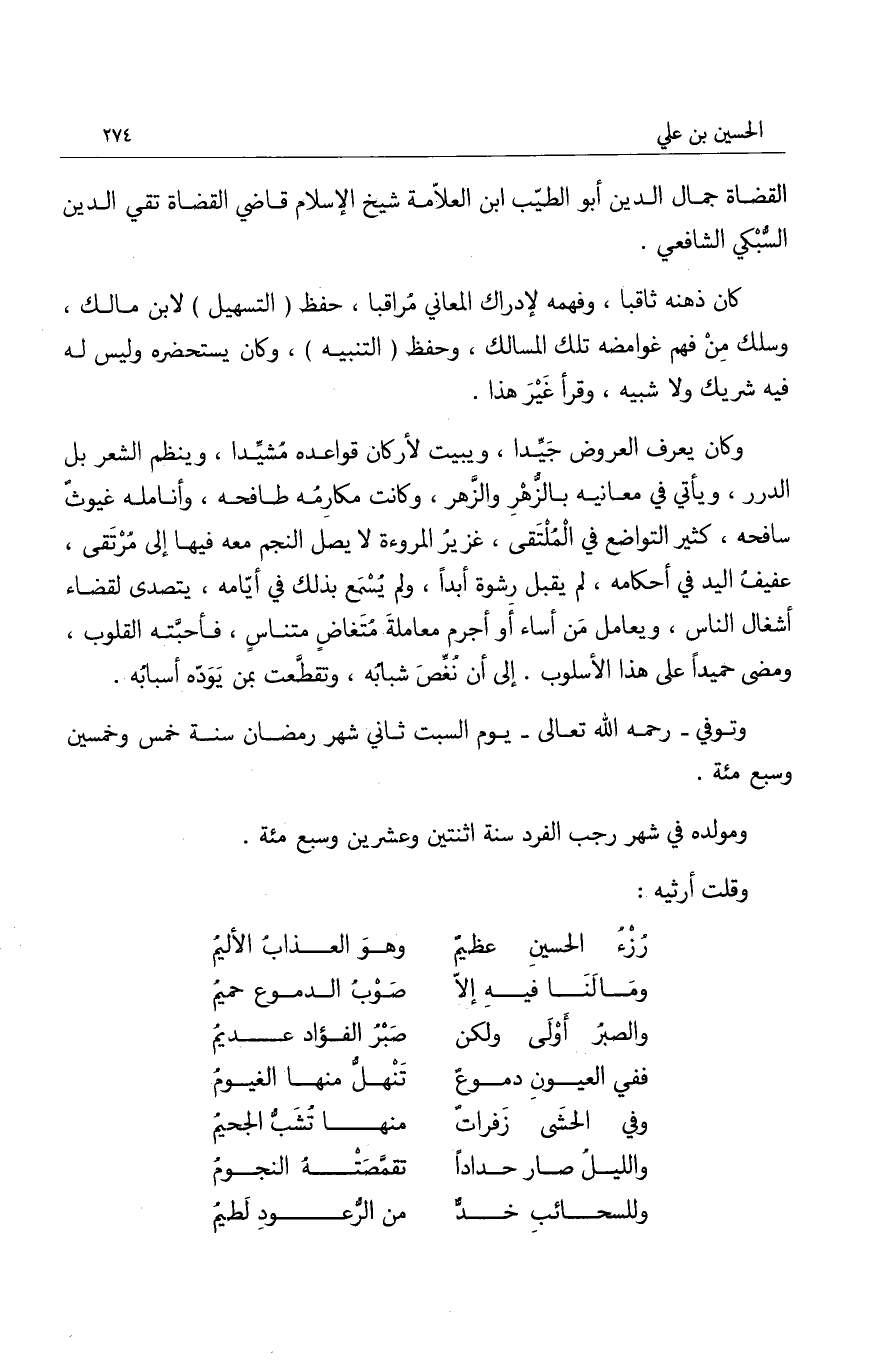 الحسين بن علي ٢٧٤
القضاة جمال الدين أبو الطيّب ابن العلاّمة شيخ الإسلام قاضي القضاة تقي الدين
السُّبْكي الشافعي .
كان ذهنه ثاقبا ، وفهمه لإدراك المعاني مُراقبا ، حفظ ( التسهيل ) لابن مالك ،
وسلك مِنْ فهم غوامضه تلك المسالك ، وحفظ ( التنبيه ) ، وكان يستحضره وليس له
فيه شريك ولا شبيه ، وقرأ غَيْرَ هذا .
وكان يعرف العروض جَيِّدا ، ويبيت لأركان قواعده مُشيِّدا ، وينظم الشعر بل
الدرر ، ويأتي في معانيه بالزُّهْرِ والزَّهر ، وكانت مكارمُه طافحه ، وأنامله غيوثٌ
سافحه ، كثير التواضع في الْمُلْتَقى ، غزيرُ المروءة لا يصل النجم معه فيها إلى مُرْتَقى ،
عفيفُ اليد في أحكامه ، لم يقبل رشوة أبداً ، ولم يُسْمَع بذلك في أيّامه ، يتصدى لقضاء
أشغال الناس ، ويعامل مَن أساء أو أجرم معاملةَ مُتَغاضٍ متناسٍ ، فأحبَّته القلوب ،
ومضى حميداً على هذا الأسلوب . إلى أن نُغِّصَ شبابُه ، وتقطَّعت بمن يَوَدّه أسبابُه .
وتوفي - رحمه الله تعالى - يوم السبت ثاني شهر رمضان سنة خمس وخمسين
وسبع مئة .
ومولده في شهر رجب الفرد سنة اثنتين وعشرين وسبع مئة .
وقلت أرثيه :
رُزْءُ الحسينِ عظيمٌ وهوَ العذابُ الأليمُ
ومَالَنَا فيهِ إلاّ صَوْبُ الدموع حميمُ
والصبرُ أَوْلَى ولكن صَبْرُ الفؤاد عديمُ
ففي العيونِ دموعٌ تَنْهلُّ منها الغيومُ
وفي الحشَى زَفراتٌ منها تُشَبُّ الجحيمُ
والليلُ صار حداداً تقمَّصَتْهُ النجومُ
وللسحائبِ خدٌّ من الرُّعودِ لَطيمُ